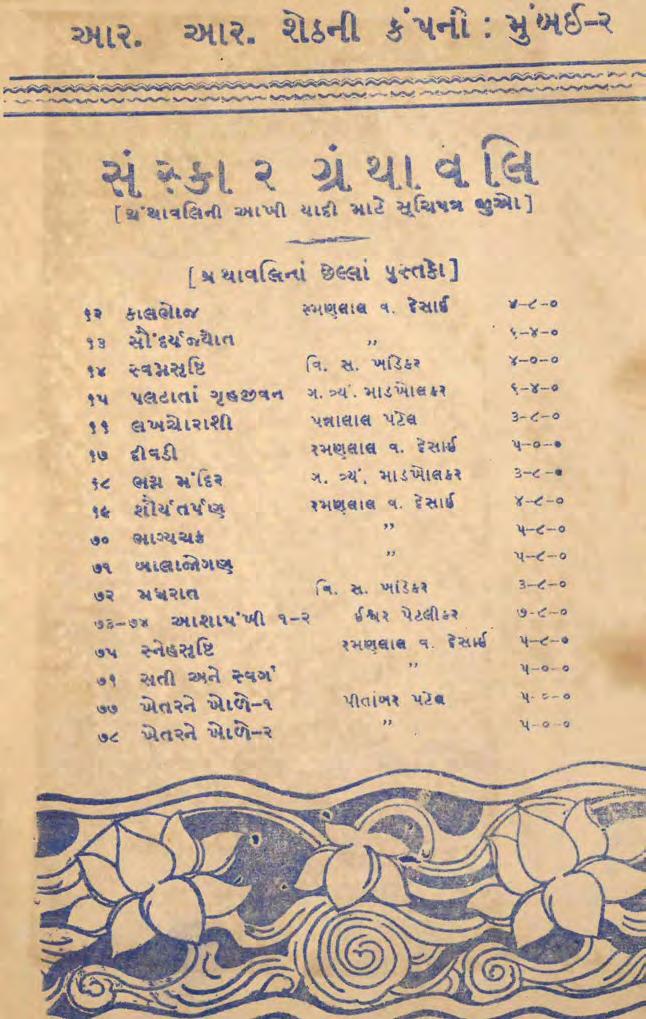 આર. આર. શેઠની કંપની : મુંબઈ-૨
સંસ્કાર ગ્રંથાવલિ
[ ગ્રંથાવલિની આખી યાદી માટે સૂચિપત્ર જુઓ ]
[ ગ્રંથાવલિનાં છેલ્લાં પુસ્તકો ]
૬૨ કાલભોજ રમણલાલ વ. દેસાઈ ૪-૮-૦
૬૩ સૌંદર્યજ્યોત ,, ૬-૪-૦
૬૪ સ્વપ્નસૃષ્ટિ વિ. સ. ખાંડેકર ૪-૦-૦
૬૫ પલટાતાં ગૃહજીવન ગ. ત્ર્યં. માડખોલકર ૬-૪-૦
૬૬ લખચોરાશી પન્નાલાલ પટેલ ૩-૮-૦
૬૭ દીવડી રમણલાલ વ. દેસાઈ ૫-૦-૦
૬૮ ભગ્ન મંદિર ગ. ત્ર્યં. માડખોલકર ૩-૮-૦
૬૯ શૌર્યતર્પણ રમણલાલ વ. દેસાઈ ૪-૮-૦
૭૦ ભાગ્યચક્ર ,, ૫-૮-૦
૭૧ બાલાજોગણ ,, ૫-૮-૦
૭૨ મધરાત વિ. સ. ખાંડેકર ૩-૮-૦
૭૩-૭૪ આશાપંખી ૧-૨ ઈશ્વર પેટલીકર ૭-૮-૦
૭૫ સ્નેહસૃષ્ટિ રમણલાલ વ. દેસાઈ ૫-૮-૦
૭૬ સતી અને સ્વર્ગ ,, ૫-૦-૦
૭૭ ખેતરને ખોળે-૧ પીતાંબર પટેલ ૫-૦-૦
૭૮ ખેતરને ખોળે-૨ ,, ૫-૦-૦